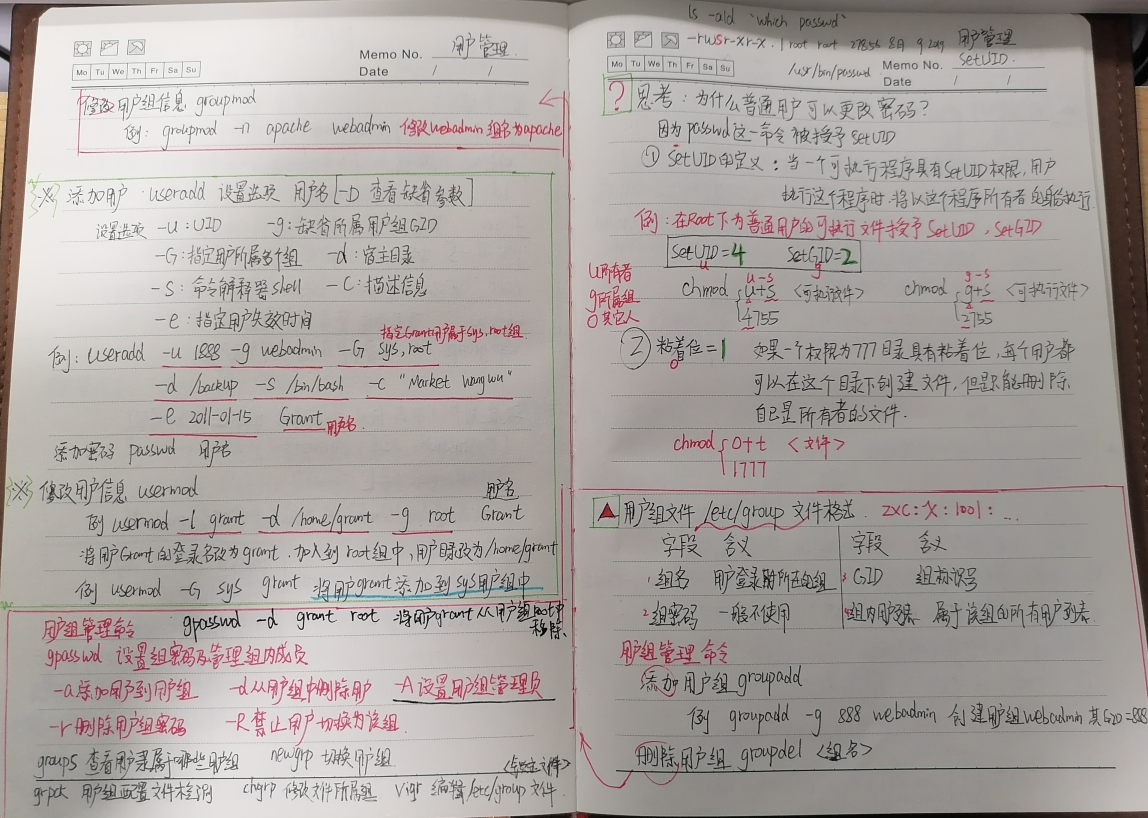 Memo No. 用户管理
Mo Tu We Th Fr Sa Su
Date / /
修改用户组信息 groupmod
例: groupmod -n apache webadmin 修改webadmin组名为apache
※ 添加用户 useradd 设置选项 用户名[-D 查看缺省参数]
设置选项 -u:UID -g:缺省所属用户组GID
-G:指定用户所属多个组 -d:宿主目录
-s:命令解释器shell -c:描述信息
-e:指定用户失效时间
指定Grant用户属于sys,root组
例: useradd -u 1888 -g webadmin -G sys,root
-d /backup -s /bin/bash -c "Market wangwu"
-e 2011-01-15 Grant 用户名
添加密码 passwd 用户名
※ 修改用户信息 usermod 用户名
例 usermod -l grant -d /home/grant -g root Grant
将用户Grant的登录名改为grant,加入到root组中,用户目录改为/home/grant
例 usermod -G sys grant 将用户grant添加到sys用户组中
gpasswd -d grant root 将用户grant从用户组root中移除
用户组管理命令
gpasswd 设置组密码及管理组内成员
-a添加用户到用户组 -d从用户组中删除用户 -A设置用户组管理员
-r删除用户组密码 -R禁止用户切换为该组
groups 查看用户隶属于哪些用户组 newgrp 切换用户组
grpck 用户组配置文件检测 chgrp 修改文件所属组 vigr 编辑/etc/group文件
ls -ald `which passwd`
-rwsr-xr-x. 1 root root 27856 8月 9 2019
/usr/bin/passwd
用户管理
Memo No. SetUID
Mo Tu We Th Fr Sa Su
Date / /
? 思考:为什么普通用户可以更改密码?
因为passwd这一命令被授予SetUID
① SetUID的定义:当一个可执行程序具有SetUID权限,用户
执行这个程序时,将以这个程序所有者的身份执行.
例:在Root下为普通用户的可执行文件授予SetUID,SetGID
SetUID=4 SetGID=2
u g
u所有者
g所属组
o其它人
u-s g-s
chmod { u+s <可执行文件> chmod { g+s <可执行文件>
4755 2755
② 粘着位=1 如果一个权限为777目录具有粘着位,每个用户都
o
可以在这个目录下创建文件,但是只能删除
自己是所有者的文件.
chmod { o+t <文件>
1777
▲ 用户组文件 /etc/group 文件格式 zxc:x:1001:...
字段 含义 字段 含义
1 组名 用户登录时所在的组 3 GID 组标识号
2 组密码 一般不使用 组内用户列表 属于该组的所有用户列表
用户组管理命令
添加用户组 groupadd
例 groupadd -g 888 webadmin 创建用户组webadmin 其GID=888
删除用户组 groupdel <组名>